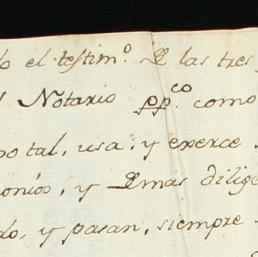 o el testim.º De las tres
l Notario pp.co como
no tal, usa, y exerce
onios, y Demas dilige
do, y pasan, siempre